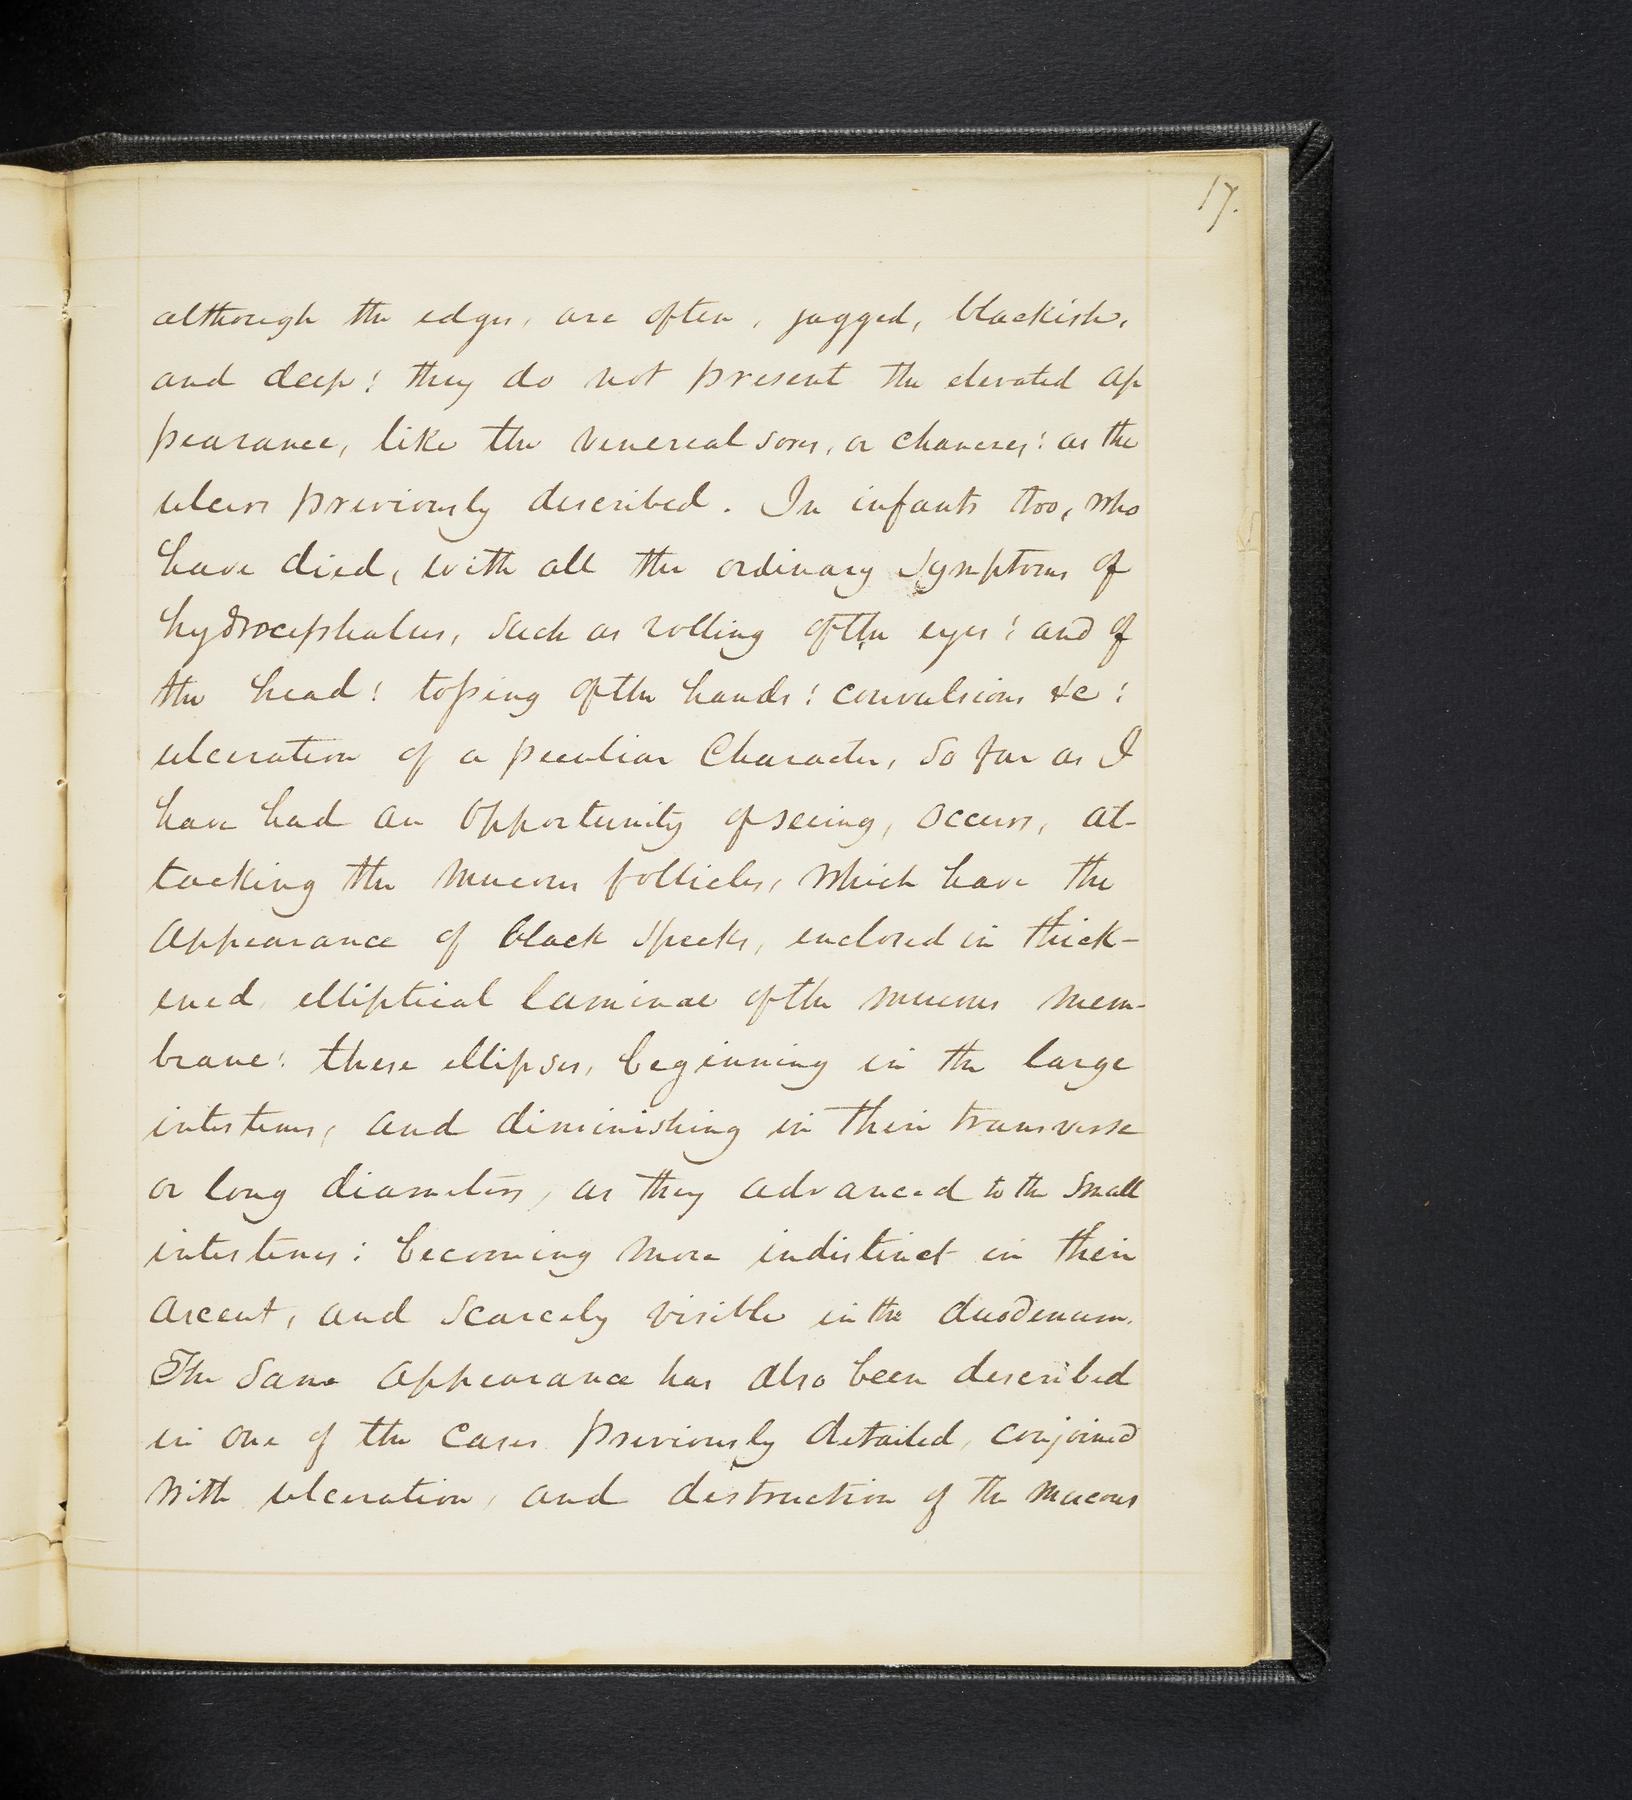 17.
although the edges, are often, jagged, blackish,
and deep: they do not present the elevated ap
pearance, like the venereal sores, or chancres: as the
ulcers previously described. In infants too, who
have died, with all the ordinary symptoms of
hydrocephalus, such as rolling of the eyes: and of
the head: tossing of the hands: convulsions &c:
ulceration of a peculiar Character, so far as I
have had an opportunity of seeing, occurs, at-
tacking the mucous follicles, which have the
appearance of black specks, enclosed in thick-
ened elliptical laminae of the mucous mem-
brane: these ellipses, beginning in the large
intestines, and diminishing in their transverse
or long diameters, as they advanced to the small
intestines: becoming more indistinct in their
ascent, and scarcely visible in the duodenum.
The same appearance has also been described
in one of the cases previously detailed, conjoined
with ulceration, and destruction of the mucous